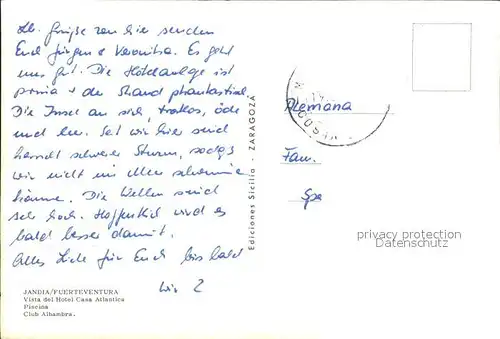 Lb. Grüße von hier senden
Euch Jürgen & Veronika. Es geht
uns gut. Die Hotelanlage ist
prima & der Strand phantastisch.
Die Insel an sich, trostlos, öde
und leer. Seit wir hier sind
herrscht schwerer Sturm, sodass
wir nicht im Meer schwimmen
können. Die Wellen sind
sehr hoch. Hoffentlich wird es
bald besser damit.
Alles Liebe für Euch bis bald
Wir 2
JANDIA/FUERTEVENTURA
Vista del Hotel Casa Atlantica
Piscina
Club Alhambra.
Ediciones Sicilia - ZARAGOZA
Alemana
Fam.
privacy protection
Datenschutz